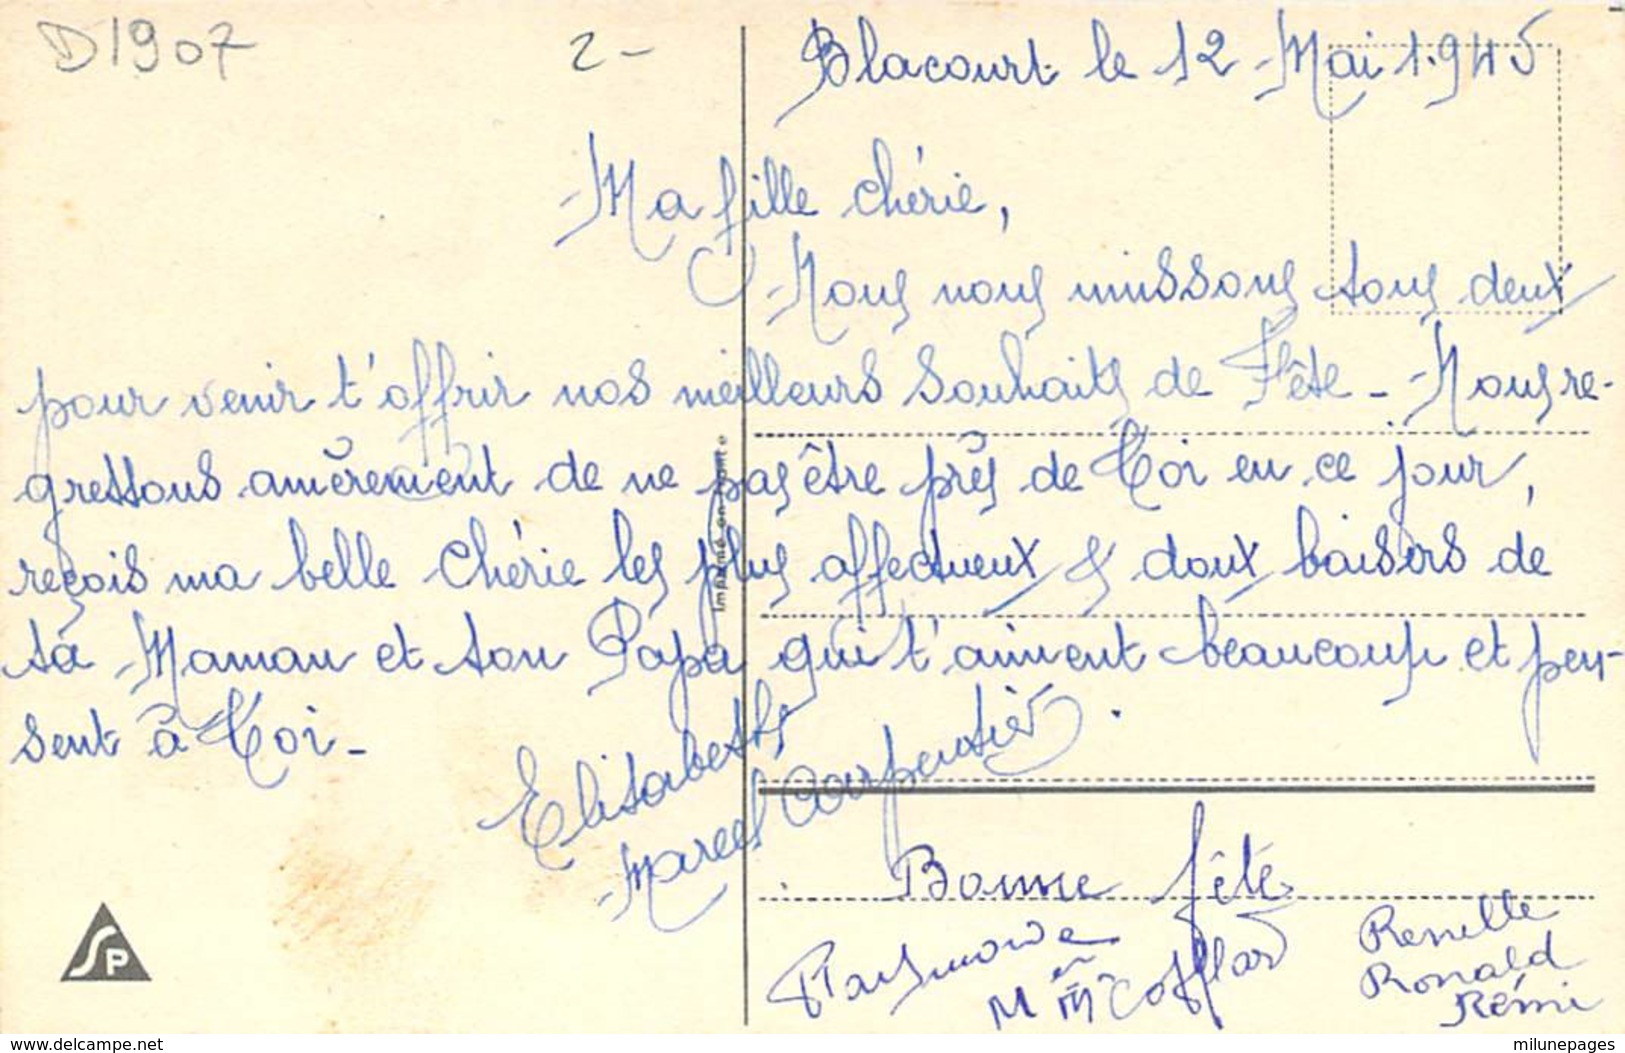 D1907
2-
Blacourt le 12 Mai 1.945
Ma fille chérie,
Nous nous unissons tous deux
pour venir t'offrir nos meilleurs souhaits de Fête - Nous re-
grettons amèrement de ne pas être près de Toi en ce jour,
reçois ma belle Chérie les plus affectueux & doux baisers de
ta Maman et ton Papa qui t'aiment beaucoup et pen-
sent à Toi -
Elisabeth
Marcel Carpentier.
Bonne fête
Raymonde
M et Mme Cofflard
Renelle
Ronald
Rémi
Imprimé en
SP
www.delcampe.net
milunepages